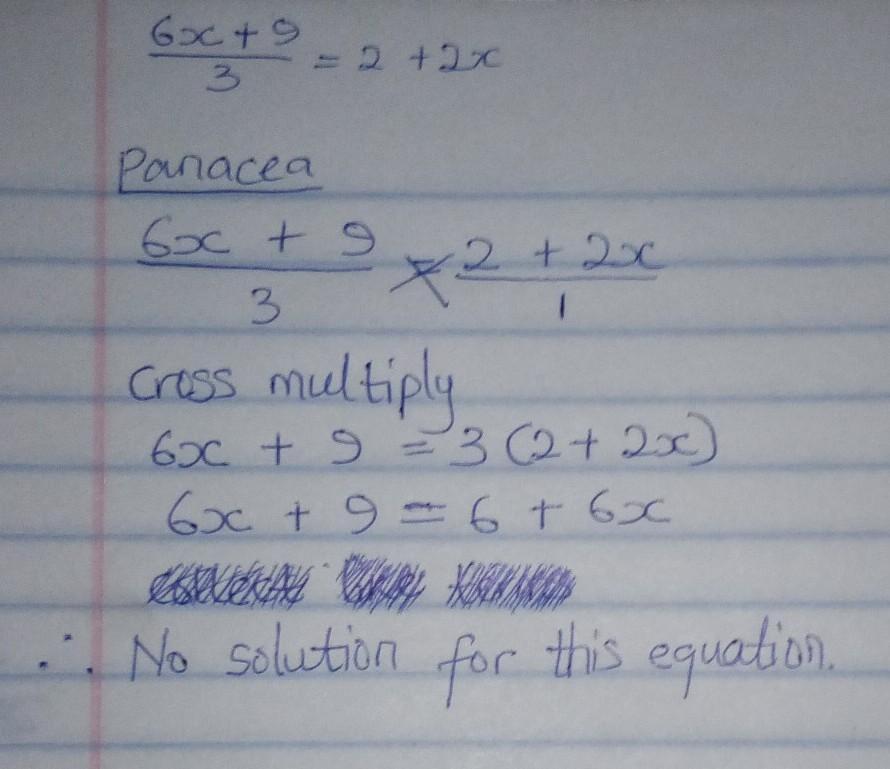 6x + 9 / 3 = 2 + 2x
Panacea
6x + 9 / 3 × 2 + 2x / 1
Cross multiply
6x + 9 = 3 (2 + 2x)
6x + 9 = 6 + 6x
∴ No solution for this equation.